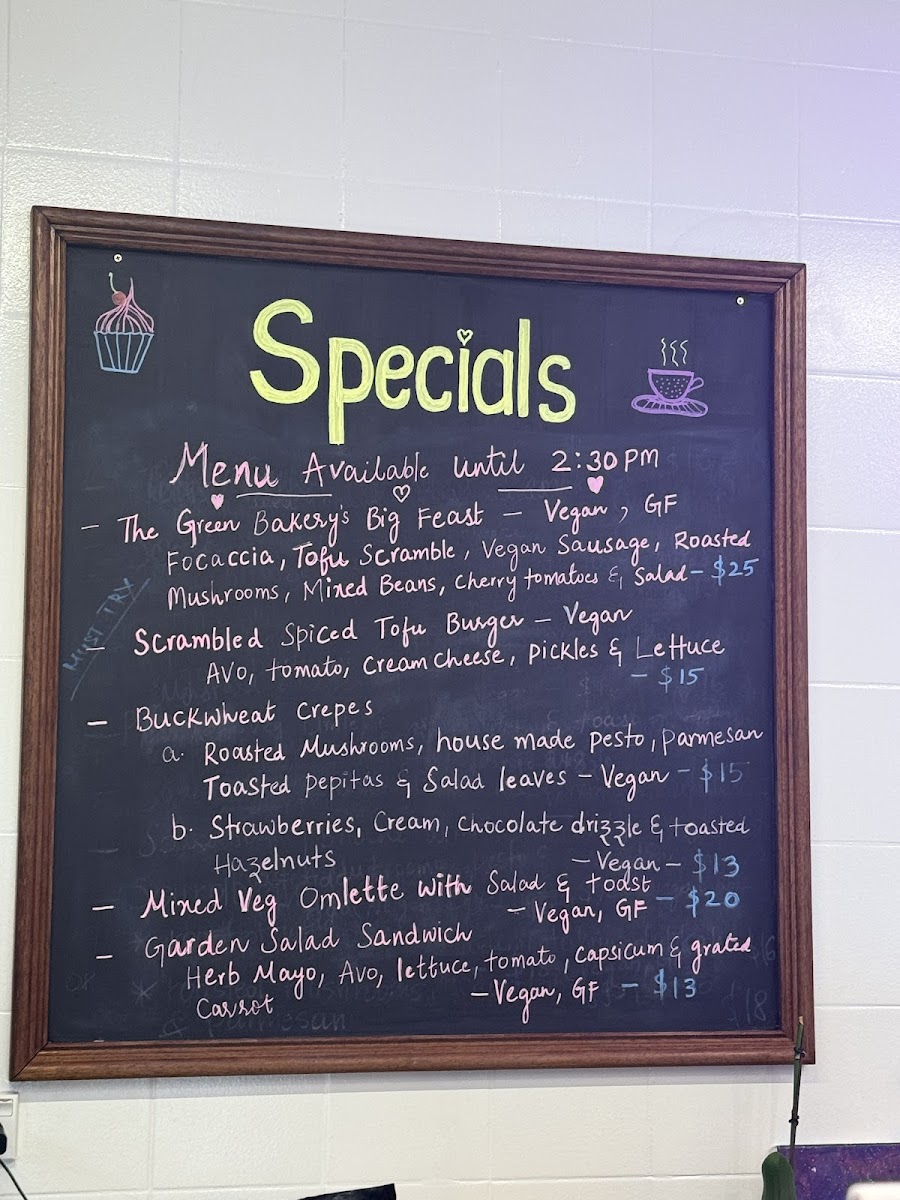 Specials
Menu Available until 2:30 PM
- The Green Bakery's Big Feast - Vegan, GF
Focaccia, Tofu Scramble, Vegan Sausage, Roasted
Mushrooms, Mixed Beans, Cherry tomatoes & Salad - $25
MUST TRY
- Scrambled Spiced Tofu Burger - Vegan
Avo, tomato, Cream cheese, pickles & Lettuce
- $15
- Buckwheat Crepes
a. Roasted Mushrooms, house made pesto, parmesan
Toasted pepitas & Salad leaves - Vegan - $15
b. Strawberries, Cream, chocolate drizzle & toasted
Hazelnuts - Vegan - $13
- Mixed Veg Omlette with Salad & toast
- Vegan, GF - $20
- Garden Salad Sandwich
Herb Mayo, Avo, lettuce, tomato, capsicum & grated
Carrot - Vegan, GF - $13
& parmesan